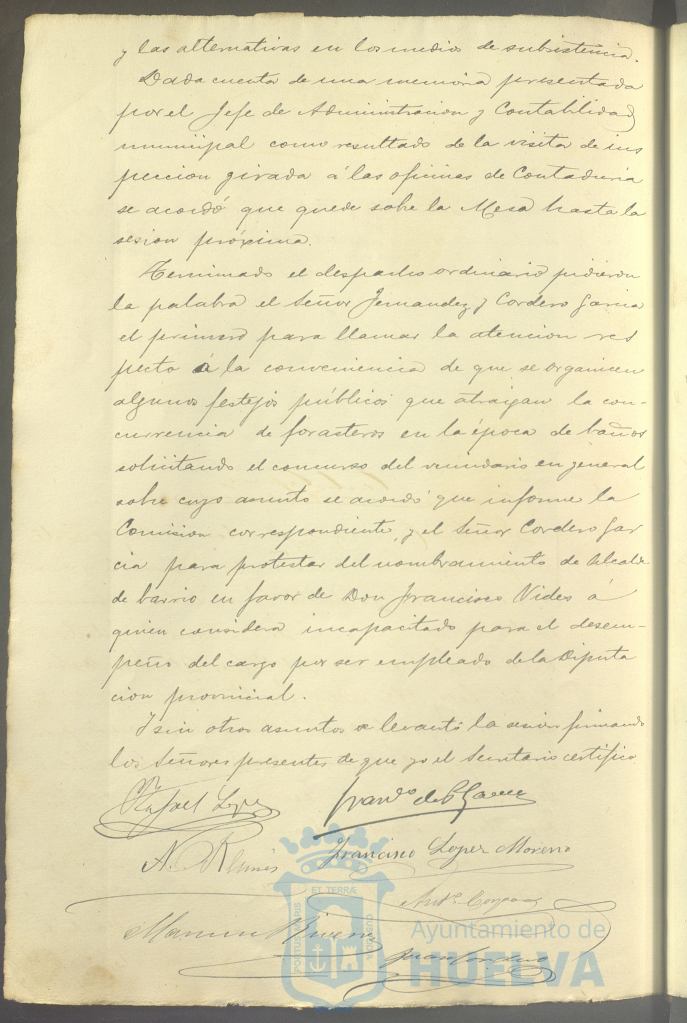 y las alternativas en los medios de subsistencia.
Dada cuenta de una memoria presentada
por el Jefe de Administracion y Contabilidad
municipal como resultado de la visita de ins
peccion girada á las oficinas de Contaduria
se acordó que quede sobre la Mesa hasta la
sesion próxima.
Terminado el despacho ordinario pidieron
la palabra el Señor Fernandez y Cordero Garcia
el primero para llamar la atencion res
pecto á la conveniencia de que se organicen
algunos festejos públicos que atraigan la con-
currencia de forasteros en la epoca de baños
solicitando el concurso del vecindario en general
sobre cuyo asunto se acordó que informe la
Comision correspondiente, y el Señor Cordero Gar
cia para protestar del nombramiento de Alcalde
de barrio en favor de Don Francisco Vides á
quien considera incapacitado para el desem-
peño del cargo por ser empleado de la Diputa
cion provincial.
Y sin otros asuntos se levantó la sesion firmando
los Señores presentes de que yo el Secretario certifico.
Rafael Lopez
Franco de P.
A.
Francisco Lopez Moreno
Anto
Manuel
Juan Cordero
PORTUS MARIS ET TERRÆ CUSTODIA
Ayuntamiento de
HUELVA